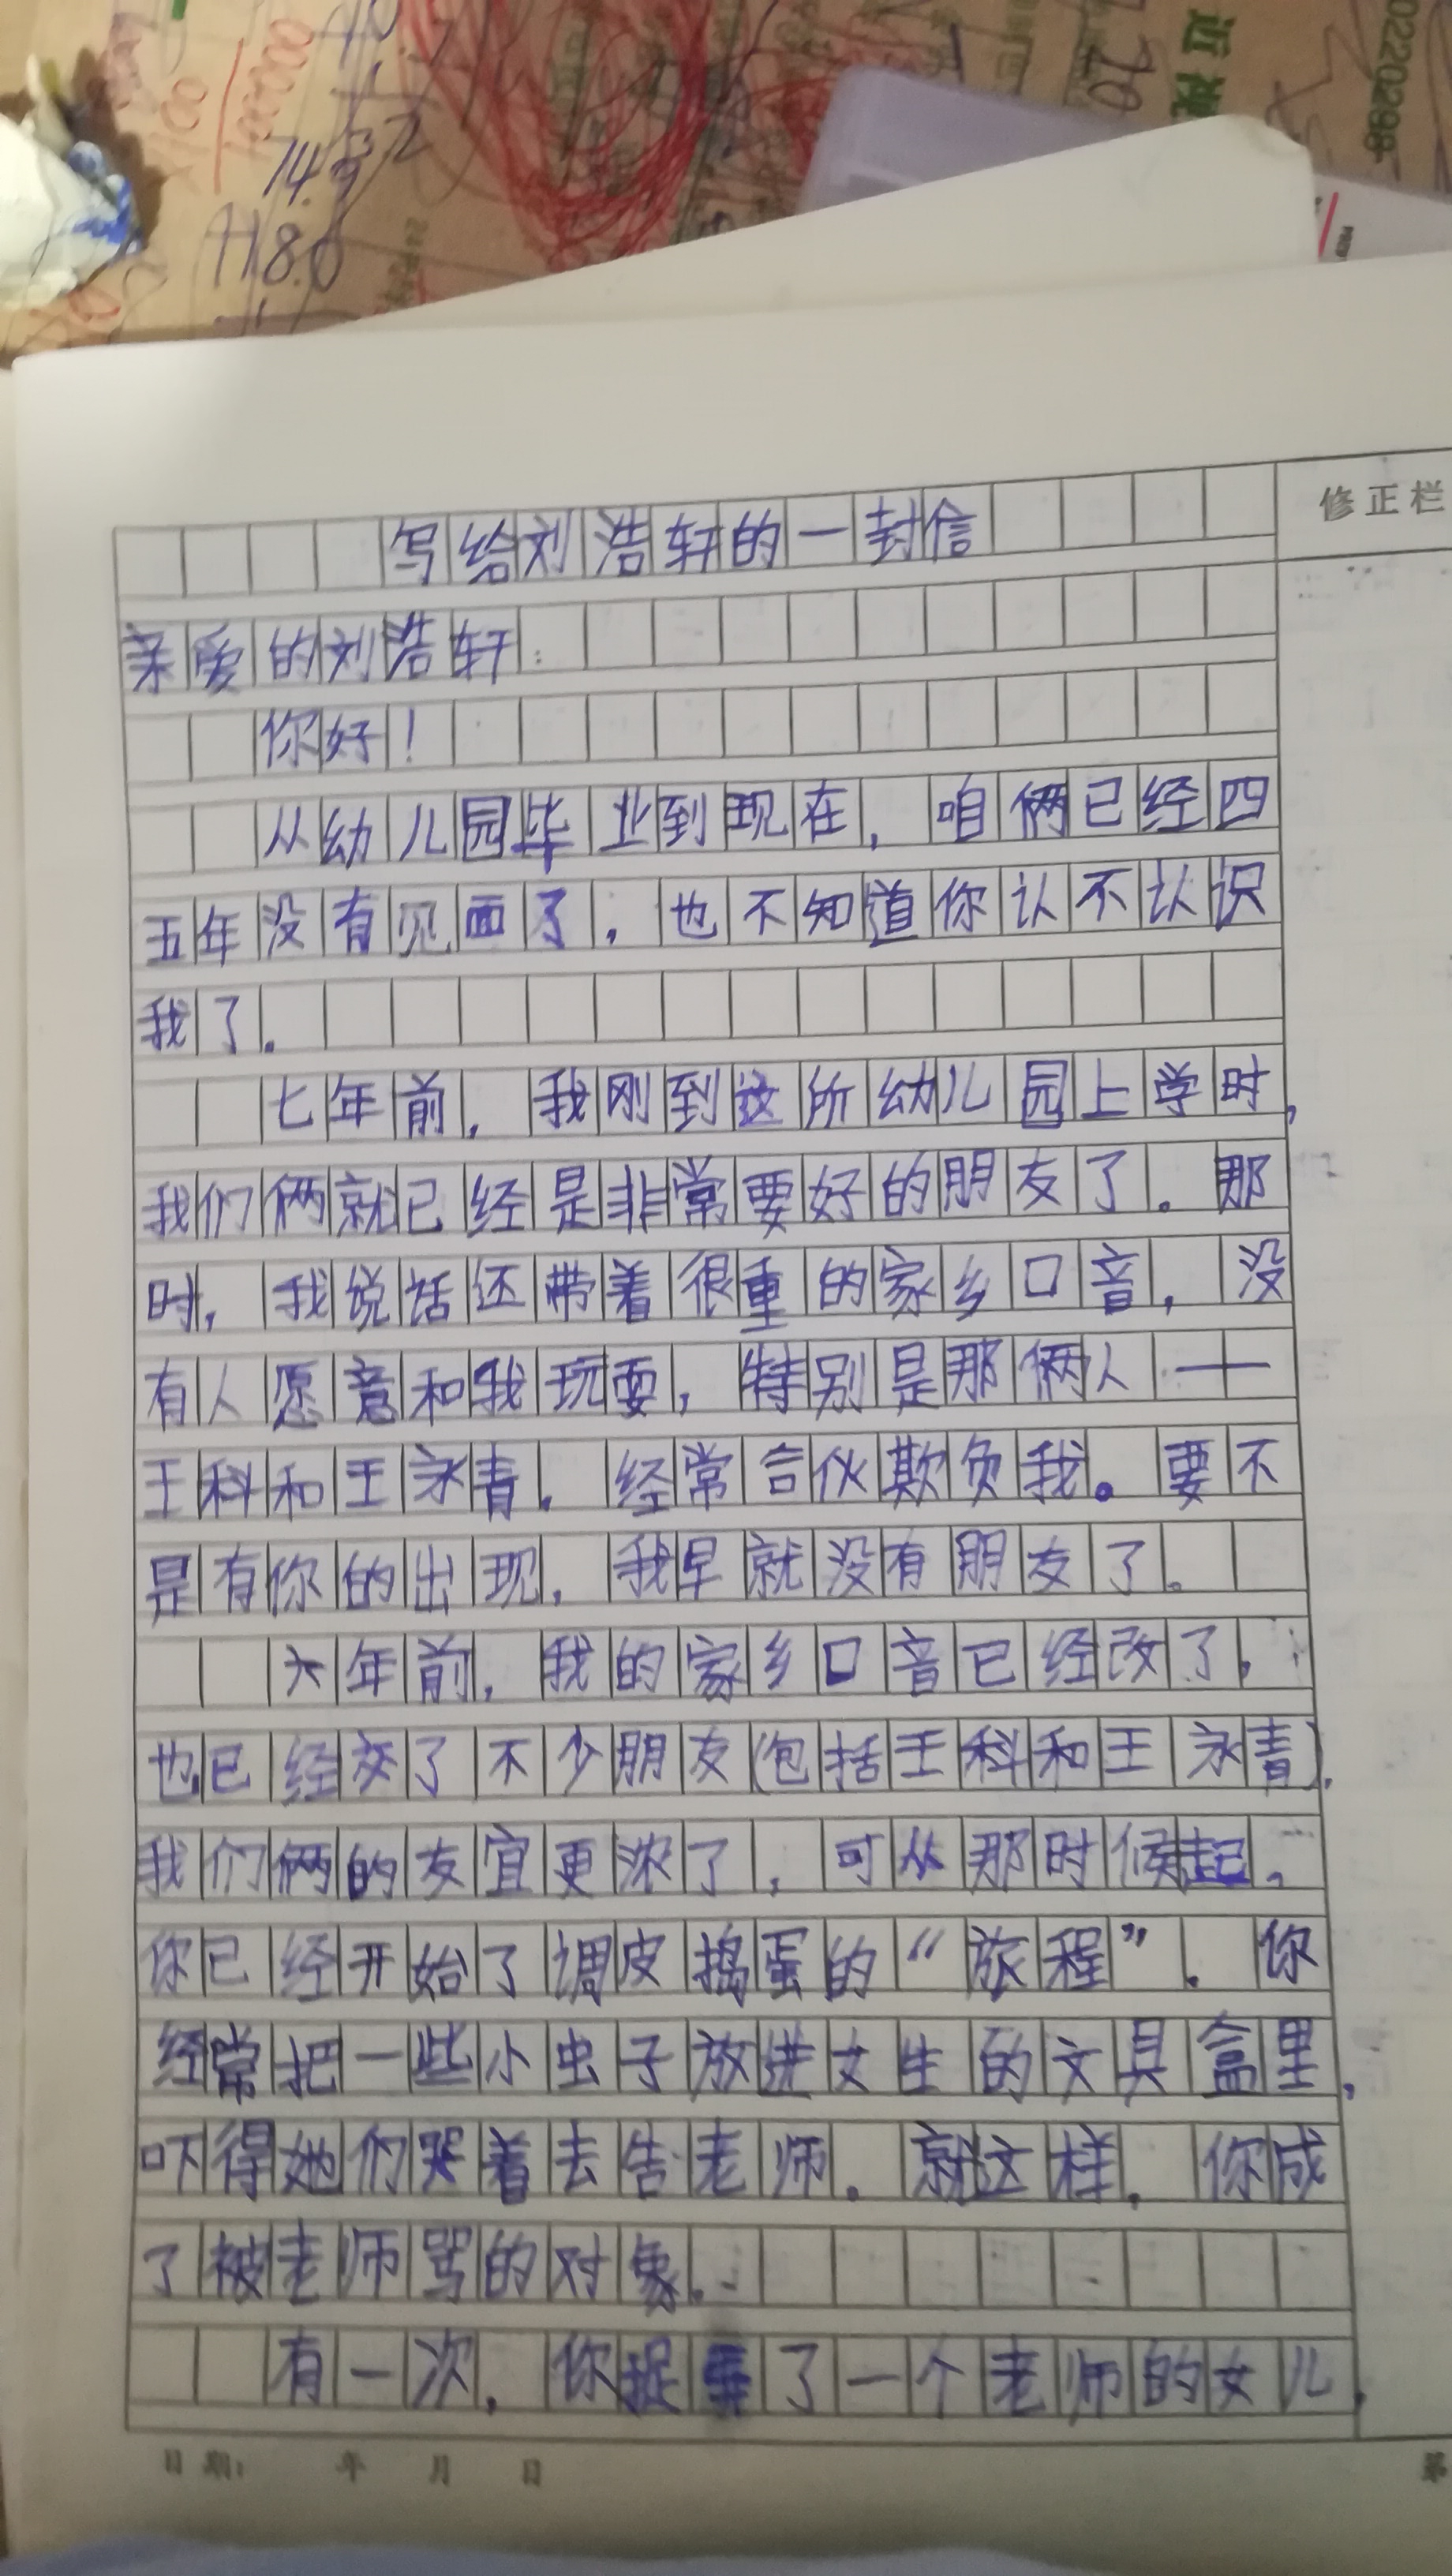 近视
0220298
74.9
+18.0
修正栏
写给刘浩轩的一封信
亲爱的刘浩轩：
你好！
从幼儿园毕业到现在，咱俩已经四
五年没有见面了，也不知道你认不认识
我了。
七年前，我刚到这所幼儿园上学时，
我们俩就已经是非常要好的朋友了。那
时，我说话还带着很重的家乡口音，没
有人愿意和我玩耍，特别是那俩人——
王科和王永青。经常合伙欺负我。要不
是有你的出现，我早就没有朋友了。
六年前，我的家乡口音已经改了，
也已经交了不少朋友（包括王科和王永青），
我们俩的友宜更浓了，可从那时候起，
你已经开始了调皮捣蛋的“旅程”。你
经常把一些小虫子放进女生的文具盒里，
吓得她们哭着去告老师。就这样，你成
了被老师骂的对象。
有一次，你捉弄了一个老师的女儿，
日期： 年 月 日
第